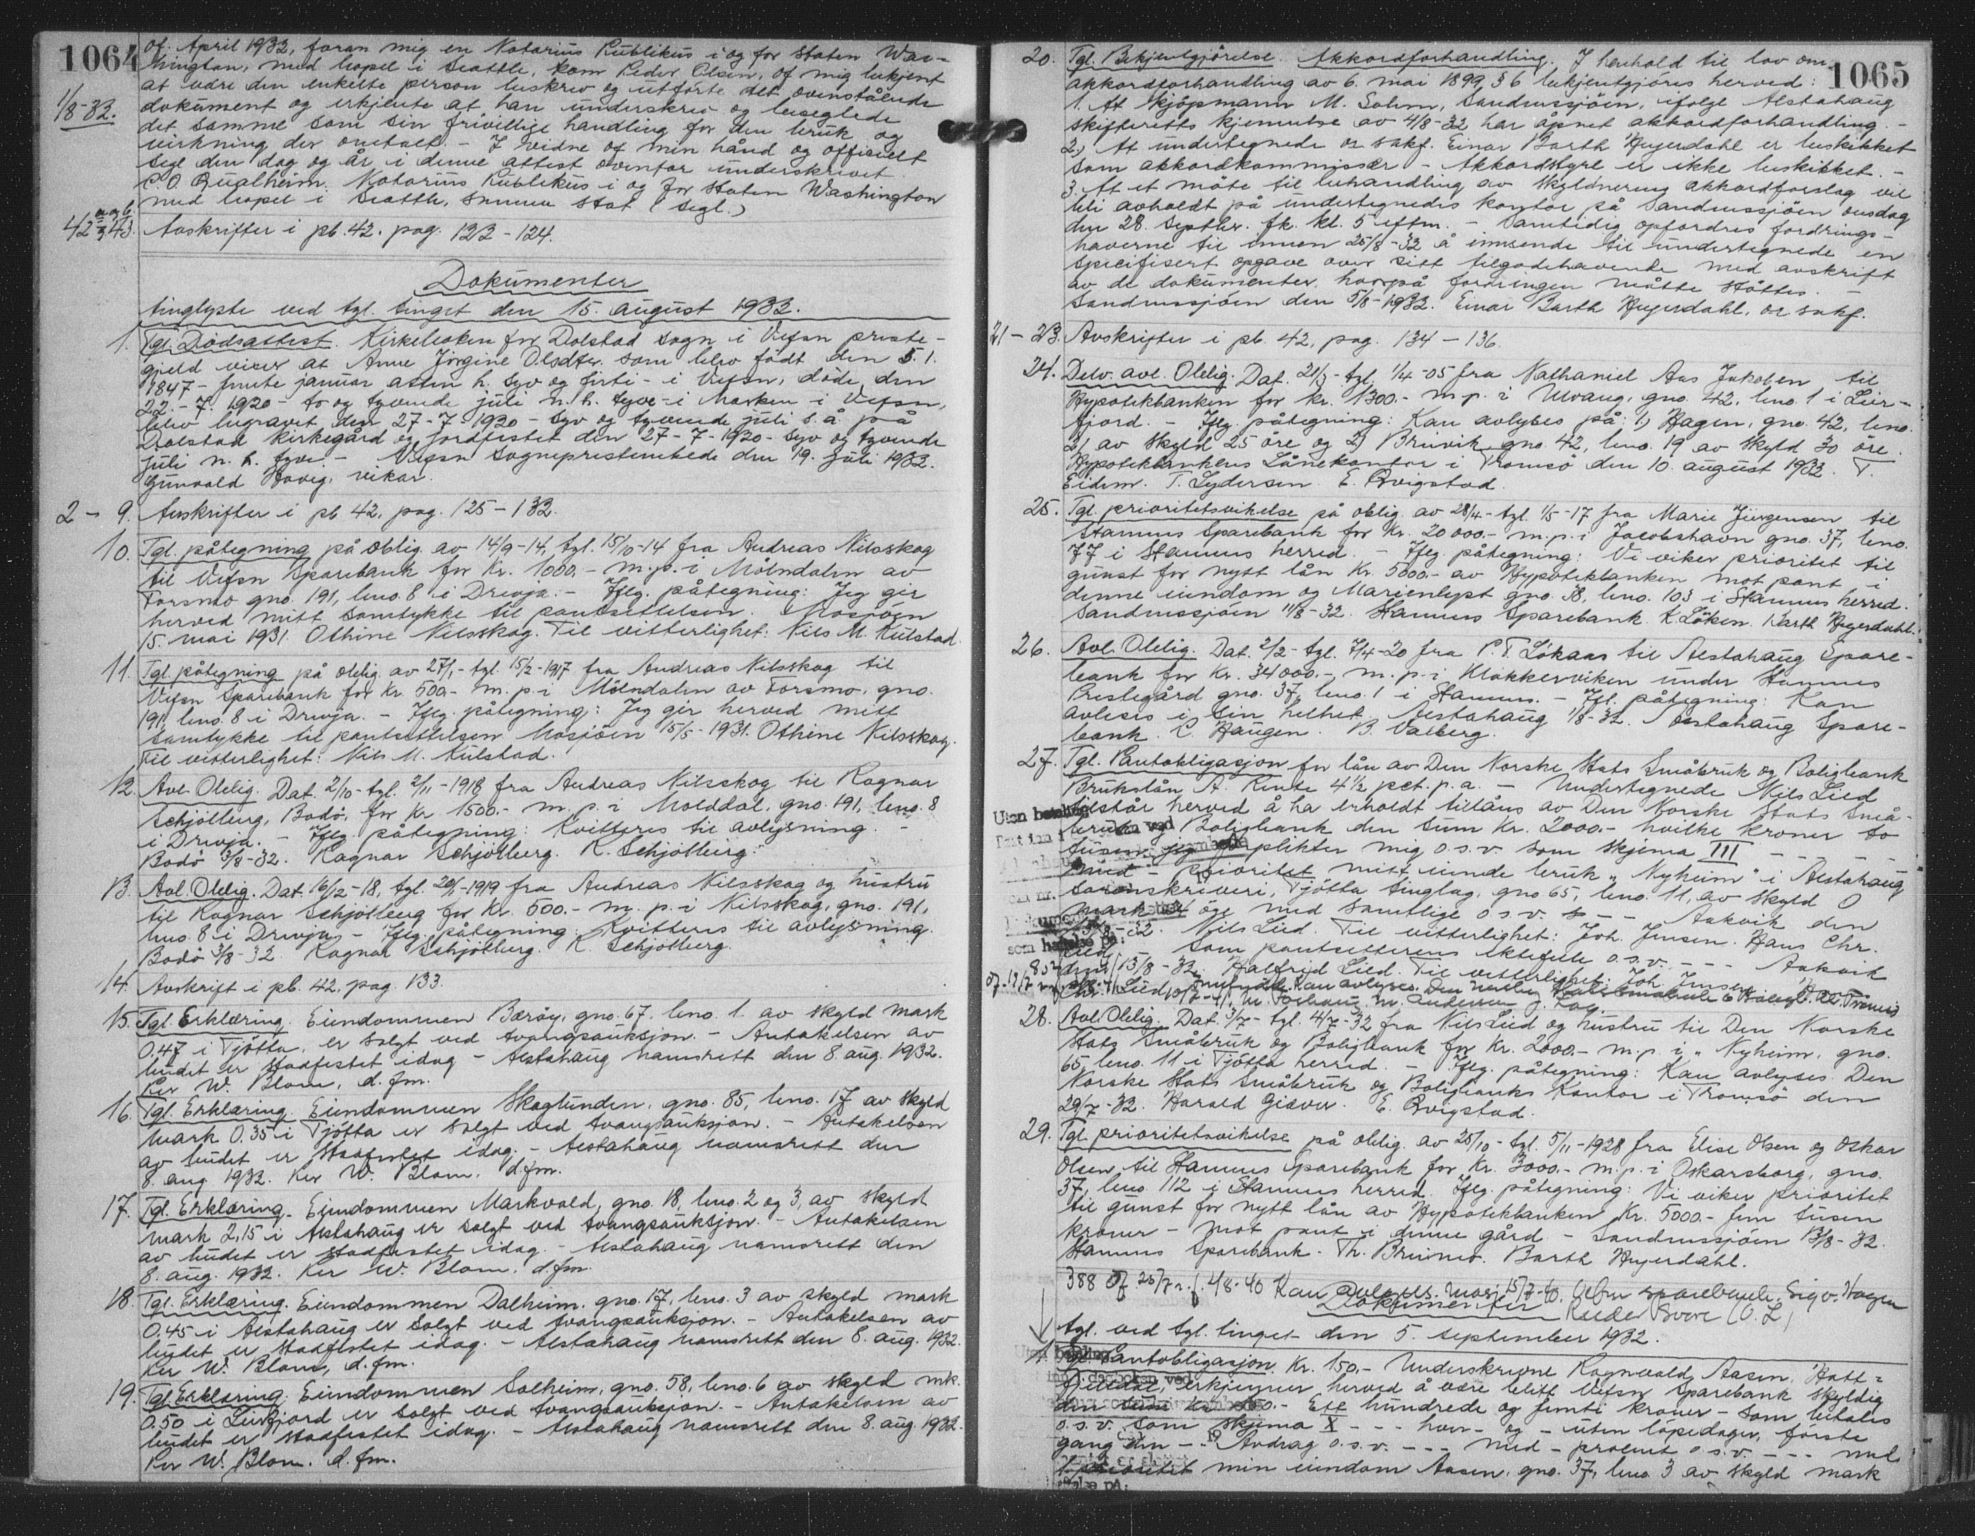 1064
1/8-32.
of April 1932, foran mig en Notarius Publikus i og for staten Was-
hington, med bopel i Seattle, kom Peder Olsen, of mig bekjent
at være den enkelte person beskrev og utførte det ovenstående
dokument og erkjente at han underskrev og beseglede
det samme som sin frivillige handling for den bruk og
virkning der omtalt. - I vidne of min hånd og officielt
segl den dag og år i denne attest ovenfor underskrevet
C. O. Qualheim. Notarius Publikus i og for staten Washington
med bopel i Seattle, samme stat (segl.)
42 43. Avskrifter i pb. 42. pag. 123-124.
Dokumenter
tinglyste ved tgl. tinget den 15. august 1932.
1. Tgl. Dødsattest. Kirkeboken for Dolstad sogn i Vefsn preste-
gjeld viser at Anne Jørgine Olsdtr. som blev født den 5.1.
1847 - femte januar atten h. syv og firti - i Vefsn, døde den
22. - 7. 1920 - to og tyvende juli n. h. tyve - i Marken i Vefsn,
blev begravet den 27-7-1920 - syv og tyvende juli s. å. på
Dolstad kirkegård og jordfestet den 27-7-1920 - syv og tyvende
juli n. h. tyve. - Vefsn Sogneprestembede den 19. juli 1932.
Gunvald Hovig, vikar.
2 - 9. Avskrifter i pb 42, pag. 125-132.
10. Tgl. påtegning på oblig. av 14/9-14, tgl. 15/10-14 fra Andreas Nilsskog
til Vefsn Sparebank for Kr. 1000.- m.p. i Mølndalen av
Forsmo gno. 191, bno. 8 i Drevja. - Iflg. påtegning: Jeg gir
herved mitt samtykke til pantsettelsen. Mosjøen
15. mai 1931. Othine Nilsskog. Til vitterlighet: Nils M. Kulstad.
11. Tgl. påtegning på oblig. av 27/1- tgl. 15/2-1917 fra Andreas Nilsskog til
Vefsn Sparebank for Kr. 500.- m. p. i Mølndalen av Forsmo, gno.
191, bno. 8 i Drevja. - Iflg. påtegning: Jeg gir herved mitt
samtykke til pantsettelsen. Mosjøen 15/5-1931. Othine Nilsskog.
Til vitterlighet: Nils M. Kulstad.
12. Avl. Oblig. Dat. 2/10- tgl. 2/11-1918 fra Andreas Nilsskog til Ragnar
Schjølberg, Bodø, for Kr 1500.- m. p. i Molddal, gno. 191, bno. 8
i Drevja. - Iflg. påtegning: Kvitteres til avlysning. -
Bodø 3/8-32. Ragnar Schjølberg. K. Schjølberg.
13. Avl. Oblig. Dat. 16/2-18, tgl. -1919 fra Andreas Nilsskog og hustru
til Ragnar Schjølberg for Kr. 500.- m. p. i Nilsskog, gno. 191,
bno. 8 i Drevja. - Iflg. påtegning: Kvitteres til avlysning.
Bodø 3/8-32. Ragnar Schjølberg. K. Schjølberg.
14. Avskrift i pb. 42, pag. 133.
15. Tgl. Erklæring. Eiendommen Bærøy, gno. 67. bno. 1. av skyld mark
0.47 i Tjøtta, er solgt ved tvangsauksjon. - Antakelsen av
budet er stadfestet idag - Alstahaug namsrett den 8. aug. 1932.
Per W. Blom, d. fm.
16. Tgl. Erklæring. Eiendommen Skoglunden, gno. 85, bno. 17 av skyld
mark 0.35 i Tjøtta er solgt ved tvangsauksjon. - Antakelsen
av budet er stadfestet idag. - Alstahaug namsrett den
8. aug 1932. Per W. Blom. d.fm.
17. Tgl. Erklæring. Eiendommen Markvold, gno. 18, bno. 2 og 3, av skyld
mark 2,15 i Alstahaug er solgt ved tvangsauksjon. - Antakelsen
av budet er stadfestet idag. - Alstahaug namsrett den
8. aug. 1932. Per W. Blom. d.fm.
18. Tgl. Erklæring. Eiendommen Dalheim, gno. 17, bno. 3 av skyld mark
0.45 i Alstahaug er solgt ved tvangsauksjon. - Antakelsen av
budet er stadfestet idag. - Alstahaug namsrett den 8. aug. 1932.
Per W. Blom, d. fm.
19. Tgl. Erklæring. Eiendommen Solheim, gno. 58, bno. 6 av skyld mk.
0.50 i Leirfjord er solgt ved tvangsauksjon. - Antakelsen av
budet er stadfestet idag. - Alstahaug namsrett den 8. aug. 1932.
Per W. Blom. d. fm.
1065
20. Tgl. Bekjentgjørelse. Akkordforhandling. I henhold til lov om
akkordforhandling av 6. mai 1899, § 6 bekjentgjøres herved:
1. At kjøpmann M. Sohn, Sandnessjøen, ifølge Alstahaug
skifteretts kjennelse av 4/8-32 har åpnet akkordforhandling. -
2.) At undertegnede or. sakf. Einar Barth Heyerdahl er beskikket
som akkordkommissær - Akkordstyre er ikke beskikket. -
3. At et møte til behandling av skyldnerens akkordforslag vil
bli avholdt på undertegnedes kontor på Sandnessjøen onsdag
den 28. septbr. fk. kl. 5 eftm. - Samtidig opfordres fordrings-
haverne til innen 25/8-32 å innsende til undertegnede en
spesifisert opgave over sitt tilgodehavende med avskrift
av de dokumenter, hvorpå fordringen måtte støttes. -
Sandnessjøen den 5/8-1932. Einar Barth Heyerdahl, or. sakf.
21 - 23. Avskrifter i pb 42, pag. 134-136.
24. Delv. avl. Oblig. Dat. 21/3- tgl. 1/4-05 fra Nathaniel Aas Jakobsen til
Hypotekbanken for kr. 1300.- m. p. i Ulvang, gno. 42, bno. 1 i Leir-
fjord. - Iflg. påtegning: Kan avlyses på: 1) Hagen, gno. 42, bno.
21 av skyld 25 øre og 2) Bruvik gno. 42, bno. 19 av skyld 30 øre.
Hypotekbankens Lånekontor i Tromsø den 10. august 1932. T.
Eidem. T. Lydersen. E. Qvigstad.
25. Tgl. prioritetsvikelse på oblig. av 28/4- tgl. 1/5-17 fra Marie Jürgensen til
Stamnes Sparebank for Kr. 20000.- m. p. i Jacobshavn gno. 37, bno.
77 i Stamnes herred. - Iflg. påtegning: Vi viker prioritet til
gunst for nytt lån Kr. 5000.- av Hypotekbanken mot pant i
denne eiendom og Marienlyst gno. 38, bno. 103 i Stamnes herred.
Sandnessjøen 11/8-32. Stamnes Sparebank K. Løken. Barth Heyerdahl.
26. Avl. Oblig. Dat. 2/2- tgl. 7/4-20 fra P. F. Løkaas til Alstahaug Spare-
bank for Kr. 34000.- m. p. i Klokkerviken under Stamnes
Prestegård gno. 37, bno. 1 i Stamnes. - Iflg. påtegning: Kan
avleses i sin helhet. Alstahaug 1/8-32. Alstahaug Spare-
bank. P. Haugen. B. Valberg.
27. Tgl. Pantobligasjon for lån av Den Norske Stats Småbruk og Boligbank
Brukslån A. Rente 4 1/2 pct. p. a. - Undertegnede Nils Lied
tilstår herved å ha erholdt tillåns av Den Norske Stats Små-
bruk og Boligbank den sum Kr. 2000.- hvilke kroner to
tusen jeg forplikter mig o. s. v. som skjema III - -
pant - prioritet mitt eiende bruk „Nyheim" i Alstahaug
sorenskriveri, Tjøtta tinglag, gno 65, bno. 11, av skyld 0
mark øre med samtlige o. s. v. - - Aakvik den
8-32. Nils Lied. Til vitterlighet: Joh. Jensen. Hans Chr.
Lied. Som pantsetterens ektefelle o. s. v. - - - Aakvik
den 13/8-32. Halfrid Lied. Til vitterlighet: Joh. Jensen.
Chr. Lied
Uten betaling
som hefte på:
28. Avl. Oblig. Dat. 3/7- tgl. 4/7-32 fra Nils Lied og hustru til Den Norske
Stats Småbruk og Boligbank for Kr. 2000.- m. p. i „Nyheim, gno.
65, bno. 11 i Tjøtta herred. - Iflg. påtegning: Kan avlyses. Den
Norske Stats Småbruk og Boligbanks Kontor i Tromsø den
29/7-32. Harald Giæver. E. Qvigstad.
29. Tgl. prioritetsvikelse på oblig. av 25/10- tgl. 5/11-1928 fra Elise Olsen og Oskar
Olsen, til Stamnes Sparebank for Kr. 3000.- m. p. i Oskarsborg, gno.
37, bno 112 i Stamnes herred. Iflg. påtegning: Vi viker prioritet
til gunst for nytt lån av Hypotekbanken Kr. 5000.- fem tusen
kroner - mot pant i denne gård - Sandnessjøen 13/8-32.
Stamnes Sparebank. Th. Brunes. Barth Heyerdahl.
388 of 25/7 4/8-40 Kan avlyses. Mosj. 15/7-40. Vefsn sparebank. Sigv. Hagen
Peder Bovre (O. L)
Dokumenter
tgl. ved tgl. tinget den 5. september 1932.
1. Tgl. Pantobligasjon. Kr. 150.- Underskrevne Ragnvald Aasen, Hatt-
fjelldal, erkjenner herved å være blitt Vefsn Sparebank skyldig
den sum Kr. 150.- Ett hundrede og femti kroner - som betales
o. s. v. som skjema X - - - hver- og - uten løpedager, første
gang den - - 19 Avdrag o. s. v. - - - med - procent o. s. v. - - - med
1 prioritet min eiendom Aasen, gno. 37, bno. 3 av skyld mark